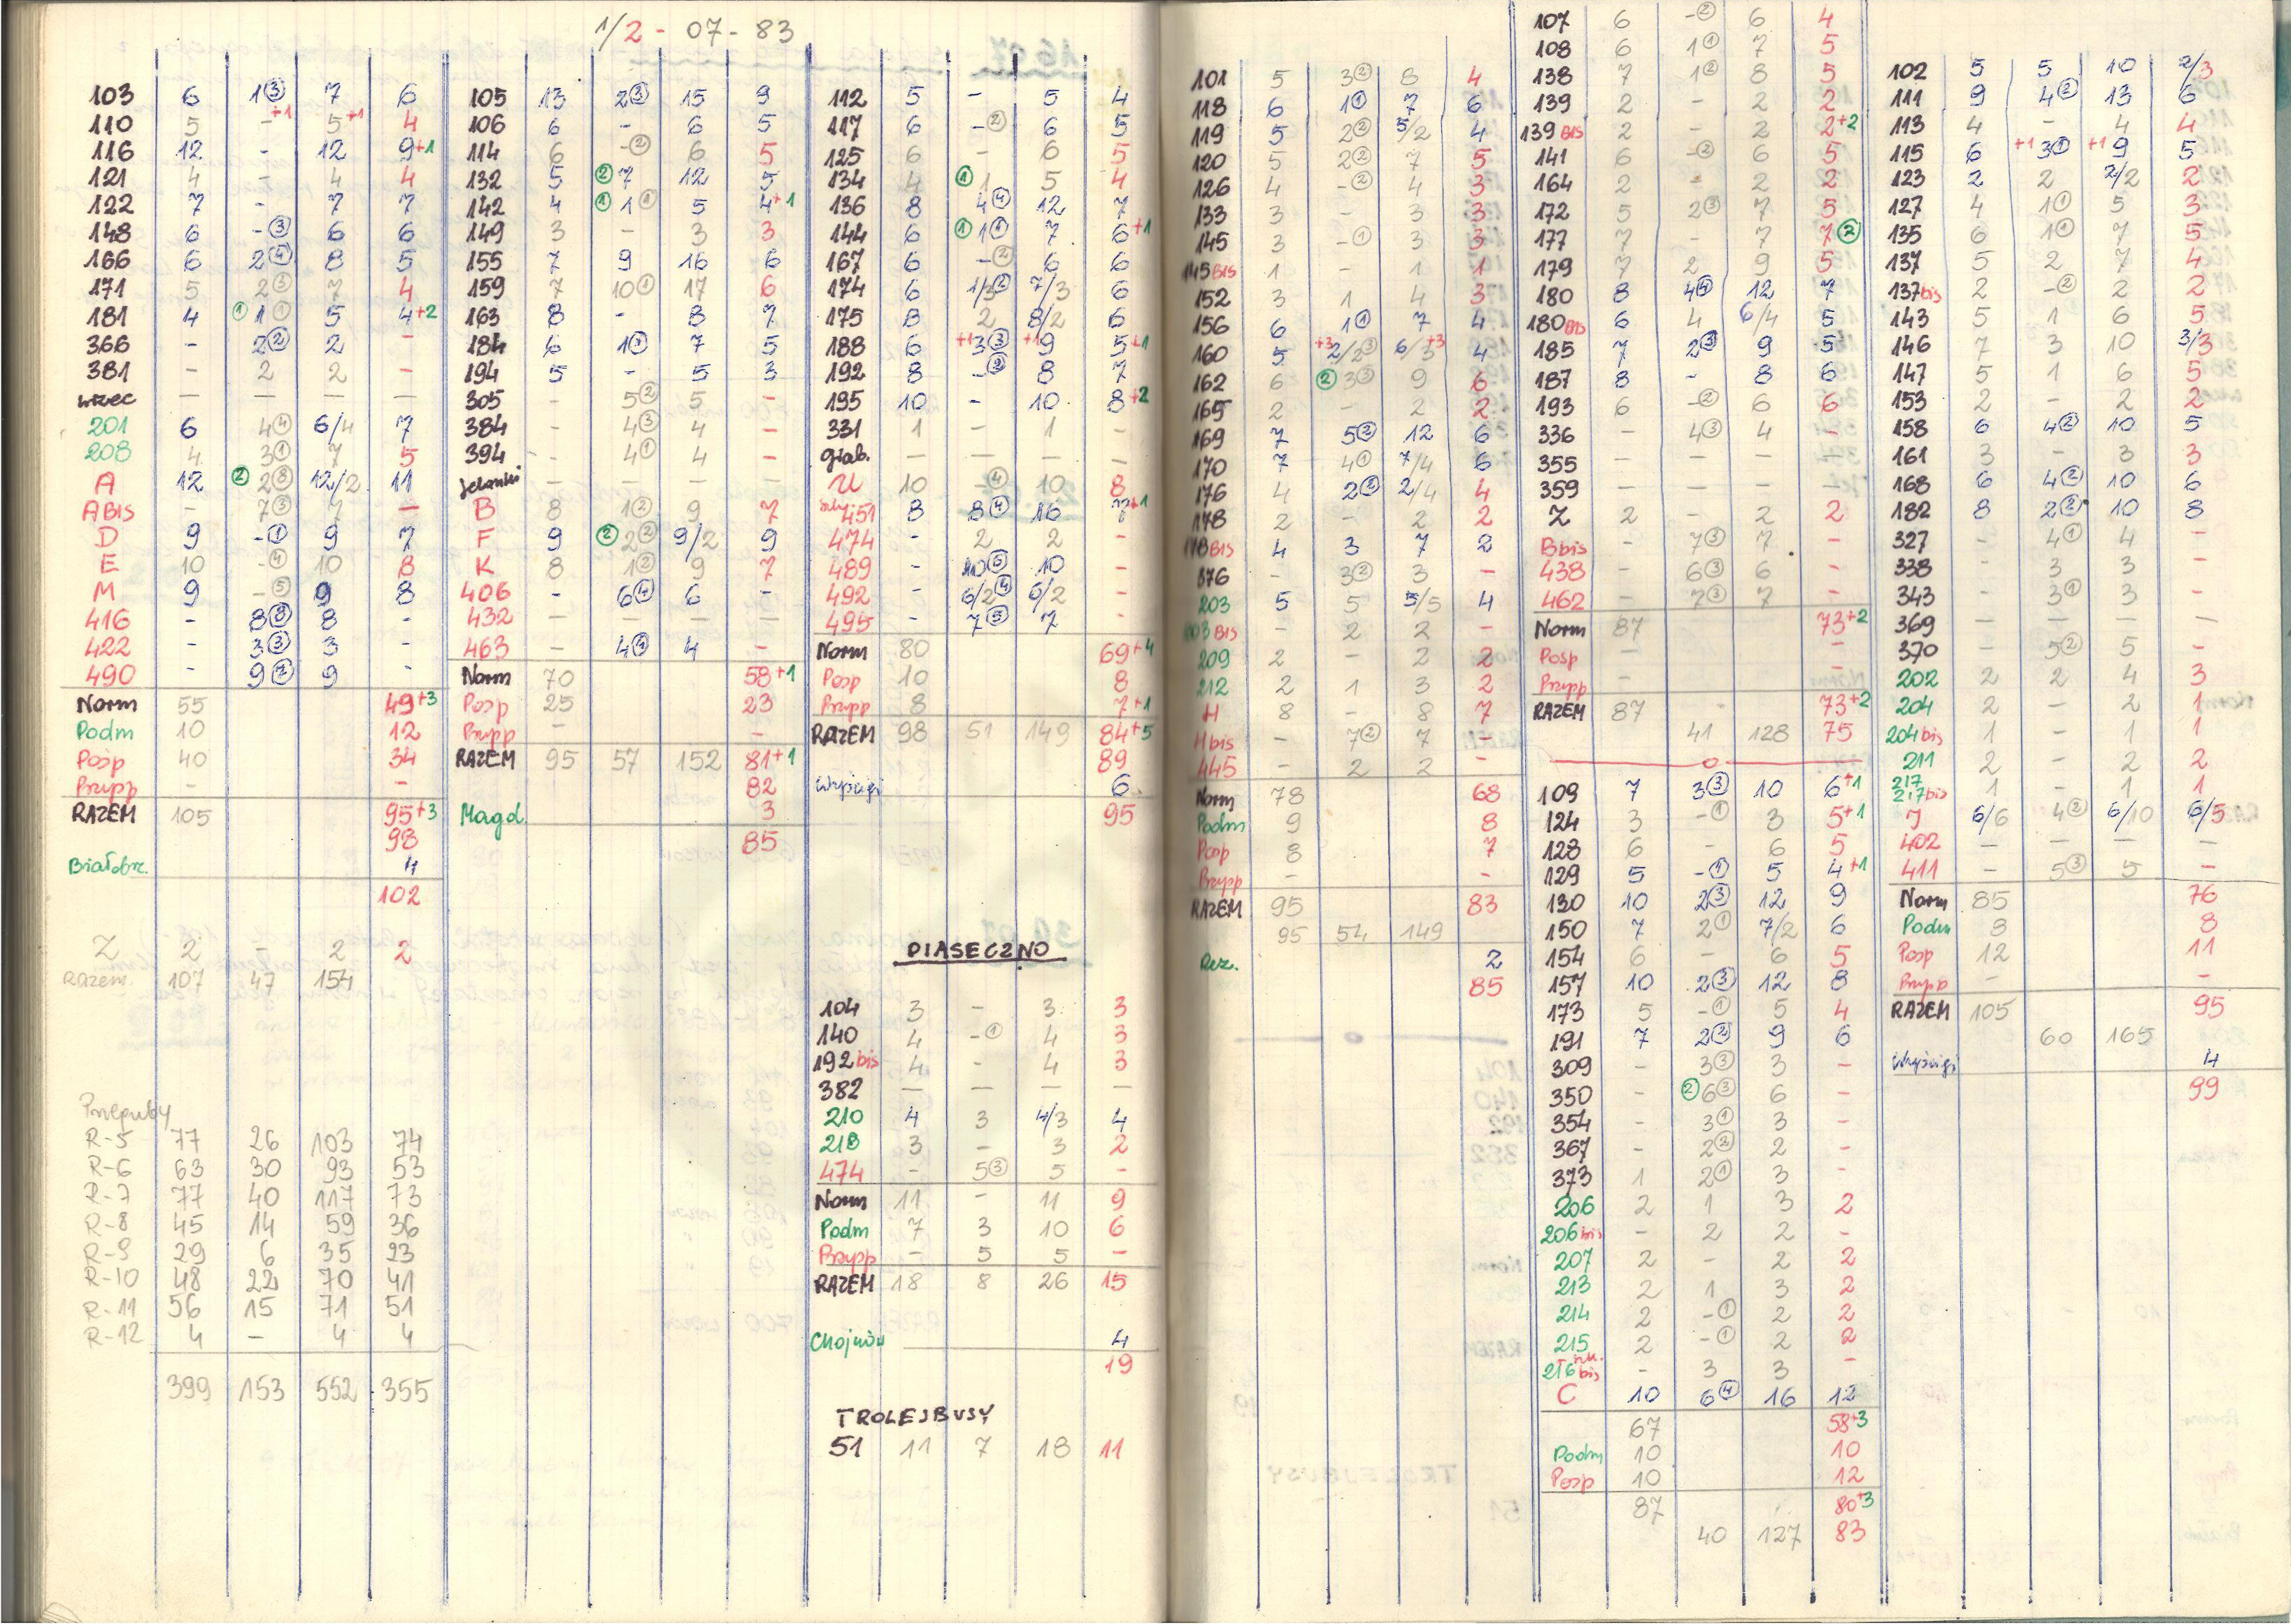 1/2 - 07 - 83
103 6 1③ 7 6
110 5 -+1 5+1 4
116 12 - 12 9+1
121 4 - 4 4
122 7 - 7 7
148 6 -③ 6 6
166 6 2④ 8 5
171 5 2③ 7 4
181 4 ①1① 5 4+2
366 - 2② 2 -
381 - 2 2 -
wrzec — — — —
201 6 4④ 6/4 7
208 4 3① 7 5
A 12 ②2⑧ 12/2 11
ABIS - 7③ 7 —
D 9 -① 9 7
E 10 -④ 10 8
M 9 -⑤ 9 8
416 - 8⑧ 8 -
422 - 3③ 3 -
490 - 9② 9 -
Norm 55 49+3
Podm 10 12
Posp 40 34
Przyp — -
RAZEM 105 95+3
98
Białobrz. 4
102
Z 2 - 2 2
Razem 107 47 154
Przeguby
R-5 77 26 103 74
R-6 63 30 93 53
R-7 77 40 117 73
R-8 45 14 59 36
R-9 29 6 35 23
R-10 48 22 70 41
R-11 56 15 71 51
R-12 4 — 4 4
399 153 552 355
105 13 2③ 15 9
106 6 - 6 5
114 6 -② 6 5
132 5 ②7 12 5
142 4 ①1① 5 4+1
149 3 - 3 3
155 7 9 16 6
159 7 10① 17 6
163 8 - 8 7
184 6 1① 7 5
194 5 - 5 3
305 - 5② 5 -
384 - 4③ 4 -
394 - 4① 4 -
Jelonki — — — —
B 8 1② 9 7
F 9 ②2② 9/2 9
K 8 1② 9 7
406 - 6④ 6 -
432 — — — —
463 — 4④ 4 -
Norm 70 58+1
Posp 25 23
Przyp — -
RAZEM 95 57 152 81+1
82
Magd. 3
85
112 5 - 5 4
117 6 -② 6 5
125 6 - 6 5
134 4 ①1 5 4
136 8 4④ 12 7
144 6 ①1① 7 6+1
167 6 -② 6 6
174 6 1/3② 7/3 6
175 8 2 8/2 6
188 6 +13③ +19 5+1
192 8 -② 8 7
195 10 - 10 8+2
331 1 — 1 -
Grab. — — — —
U 10 -④ 10 8
451 8 8④ 16 7+1
474 - 2 2 -
489 - 10⑤ 10 -
492 - 6/2④ 6/2 -
495 - 7⑤ 7 -
Norm 80 69+4
Posp 10 8
Przyp 8 7+1
RAZEM 98 51 149 84+5
89
Wyścigi 6
95
PIASECZNO
104 3 - 3 3
140 4 -① 4 3
192bis 4 - 4 3
382 — — — —
210 4 3 4/3 4
218 3 - 3 2
474 - 5③ 5 -
Norm 11 - 11 9
Podm 7 3 10 6
Przyp - 5 5 -
RAZEM 18 8 26 15
Chojnów 4
19
TROLEJBUSY
51 11 7 18 11
101 5 3② 8 4
118 6 1① 7 6
119 5 2② 5/2 4
120 5 2② 7 5
126 4 -② 4 3
133 3 - 3 3
145 3 -① 3 3
145BIS 1 - 1 1
152 3 1 4 3
156 6 1① 7 4
160 5 +32/2③ 6/3+3 4
162 6 ②3③ 9 6
165 2 - 2 2
169 7 5② 12 6
170 7 4① 7/4 6
176 4 2② 2/4 4
178 2 - 2 2
178BIS 4 3 7 2
376 - 3② 3 -
203 5 5 5/5 4
203BIS - 2 2 -
209 2 - 2 2
212 2 1 3 2
H 8 - 8 7
Hbis - 7② 7 -
445 - 2 2 -
Norm 78 68
Podm 9 8
Posp 8 7
Przyp - -
RAZEM 95 83
95 54 149
Rez. 2
85
107 6 -② 6 4
108 6 1① 7 5
138 7 1② 8 5
139 2 - 2 2
139BIS 2 - 2 2+2
141 6 -② 6 5
164 2 - 2 2
172 5 2③ 7 5
177 7 - 7 7②
179 7 2 9 5
180 8 4④ 12 7
180BIS 6 4 6/4 5
185 7 2③ 9 5
187 8 - 8 6
193 6 -② 6 6
336 — 4③ 4 -
355 — — — —
359 — — — —
Z 2 - 2 2
Bbis - 7③ 7 -
438 - 6③ 6 -
462 - 7③ 7 -
Norm 87 73+2
Posp - -
Przyp - -
RAZEM 87 73+2
41 128 75
109 7 3③ 10 6+1
124 3 -① 3 5+1
128 6 - 6 5
129 5 -① 5 4+1
130 10 2③ 12 9
150 7 2① 7/2 6
154 6 - 6 5
157 10 2③ 12 8
173 5 -① 5 4
191 7 2② 9 6
309 - 3③ 3 -
350 - ②6③ 6 -
354 - 3① 3 -
367 - 2② 2 -
373 1 2① 3 -
206 2 1 3 2
206bis - 2 2 -
207 2 - 2 2
213 2 1 3 2
214 2 -① 2 2
215 2 -① 2 2
216bis - 3 3 -
C 10 6④ 16 12
67 58+3
Podm 10 10
Posp 10 12
87 80+3
40 127 83
102 5 5 10 2/3
111 9 4② 13 6
113 4 - 4 4
115 6 +13① +19 5
123 2 2 2/2 2
127 4 1① 5 3
135 6 1① 7 5
137 5 2 7 4
137bis 2 -② 2 2
143 5 1 6 5
146 7 3 10 3/3
147 5 1 6 5
153 2 - 2 2
158 6 4② 10 5
161 3 - 3 3
168 6 4② 10 6
182 8 2② 10 8
327 - 4① 4 -
338 - 3 3 -
343 - 3① 3 -
369 — — — —
370 - 5② 5 -
202 2 2 4 3
204 2 - 2 1
204bis 1 - 1 1
211 2 - 2 2
217
217bis 1 - 1 1
J 6/6 4② 6/10 6/5
402 — — — —
411 - 5③ 5 -
Norm 85 76
Podm 8 8
Posp 12 11
Przyp - -
RAZEM 105 95
60 165
Wyścigi 4
99